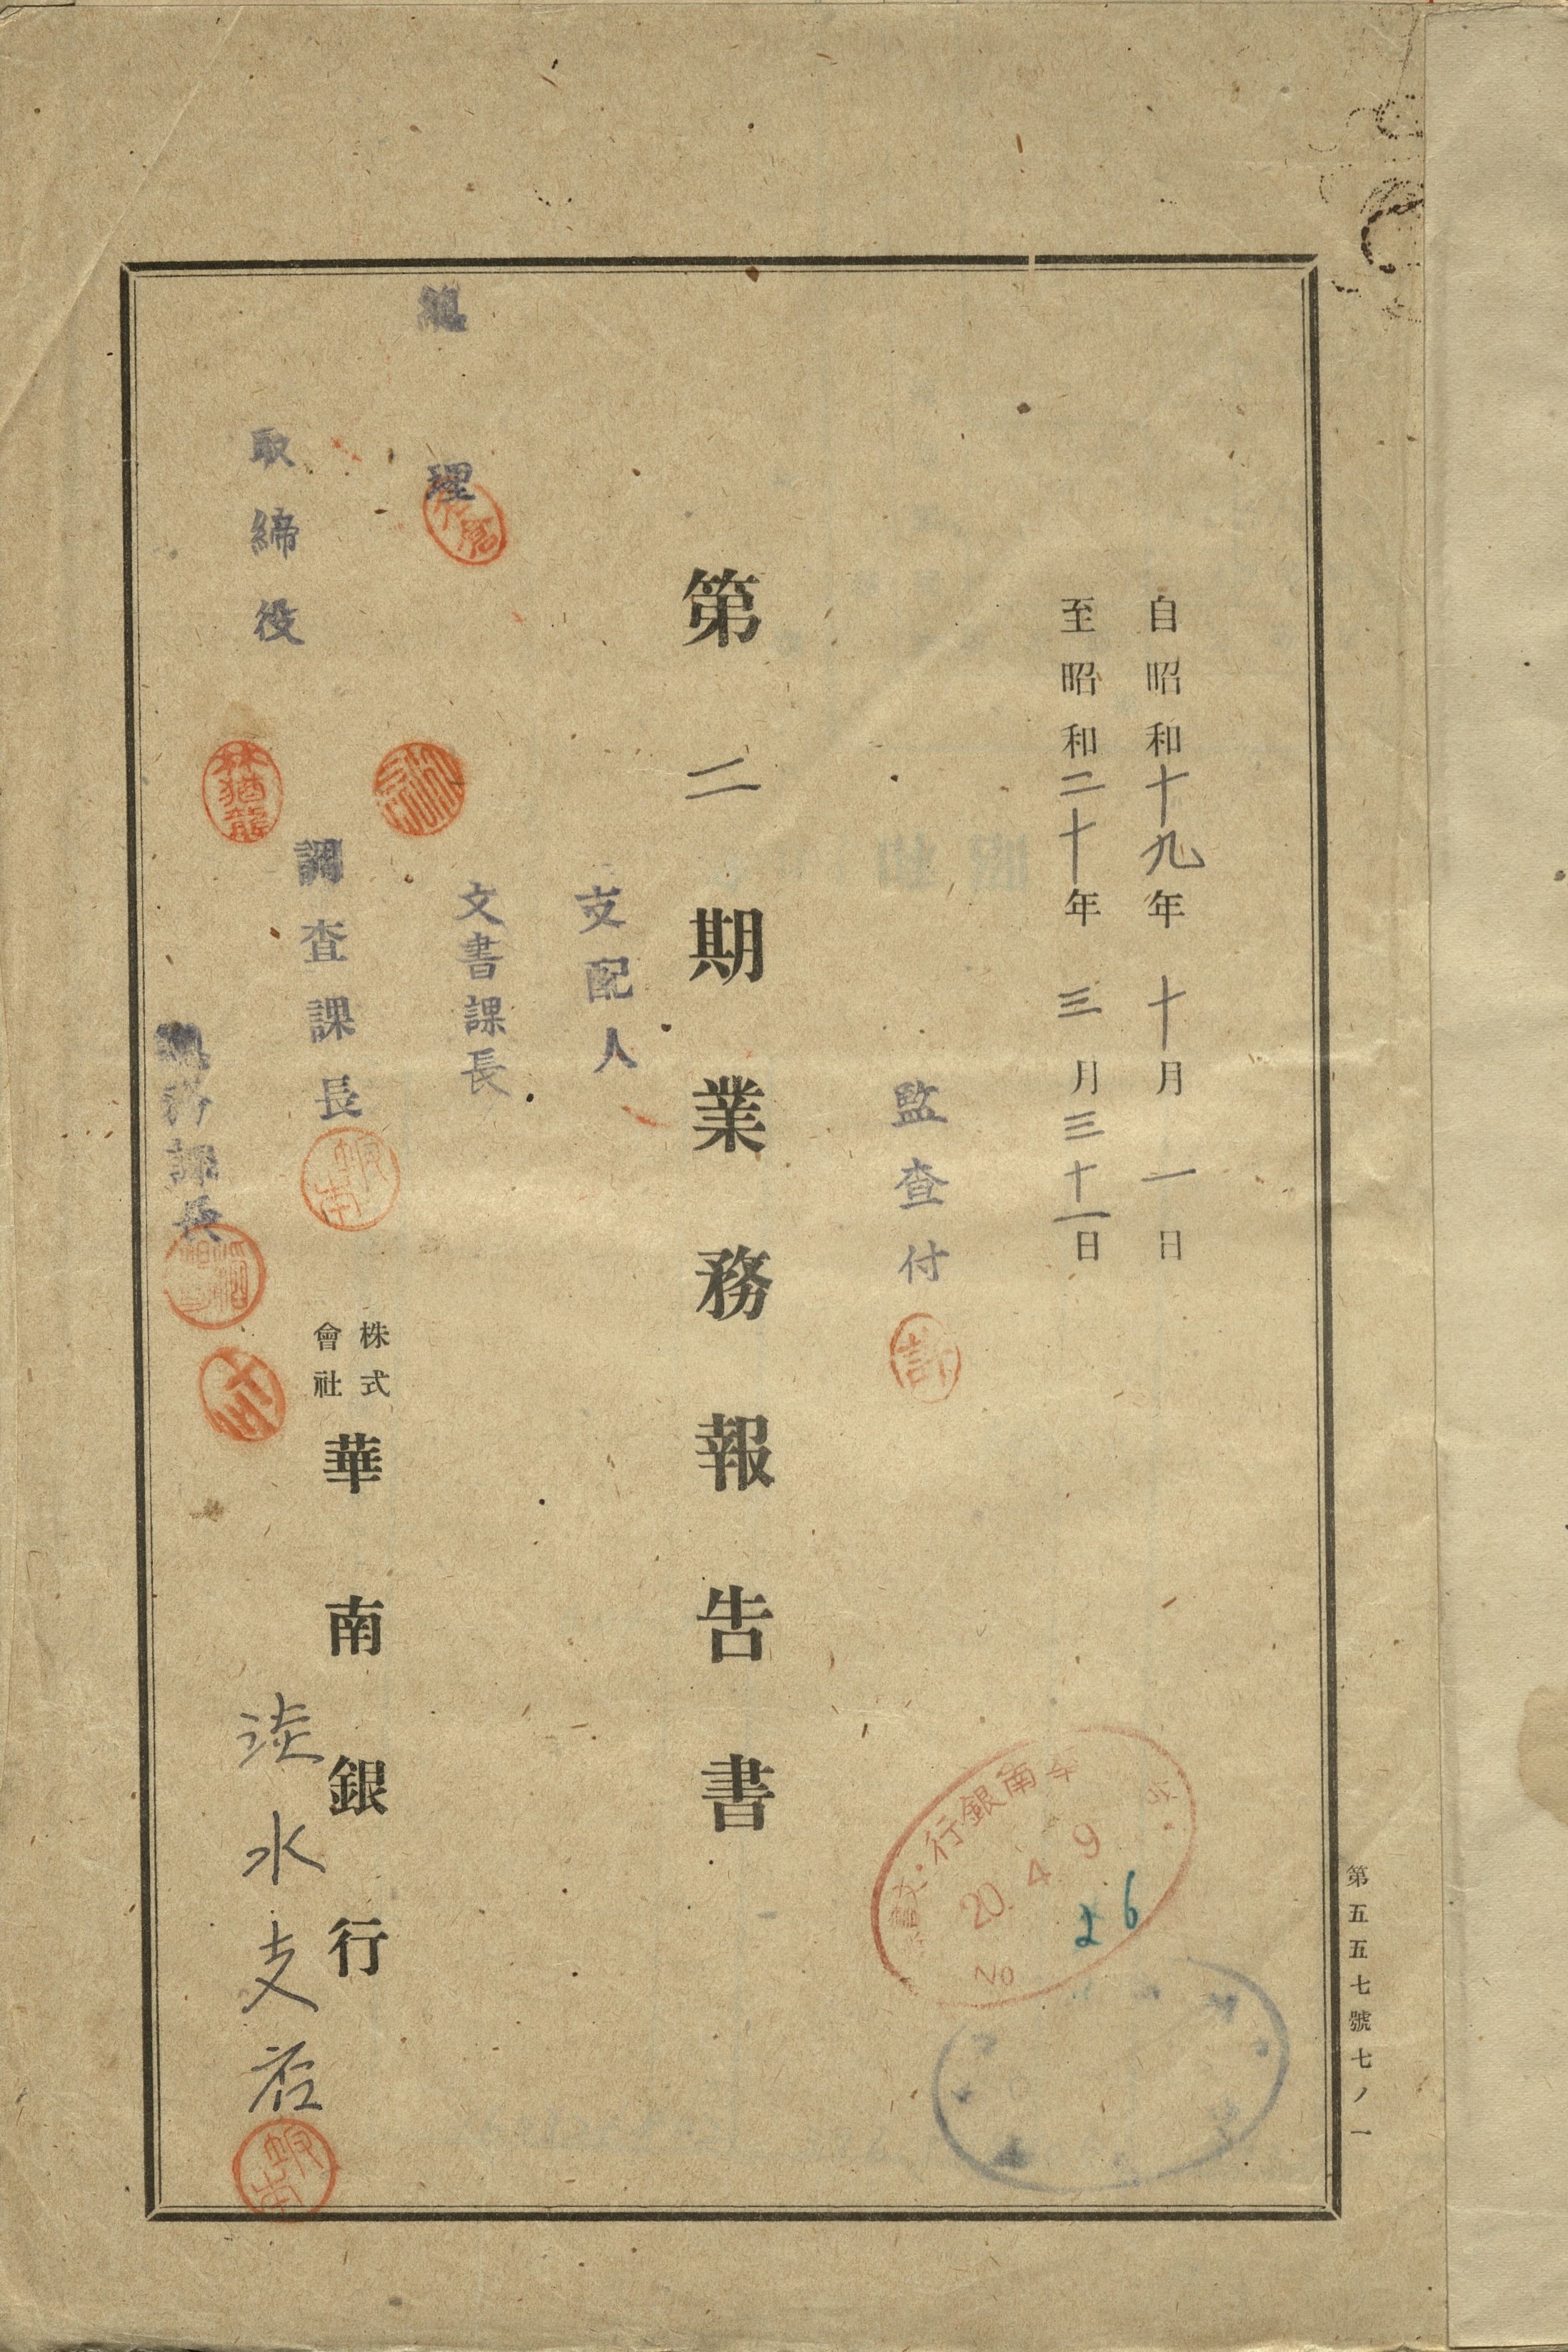 自昭和十九年十月一日
至昭和二十年三月三十一日
監査付
第二期業務報告書
支配人
文書課長
總理
調査課長
取締役
林猶龍
課長
株式會社華南銀行
淡水支店
南銀行
20. 4. 9
No 26
第五五七號七ノ一